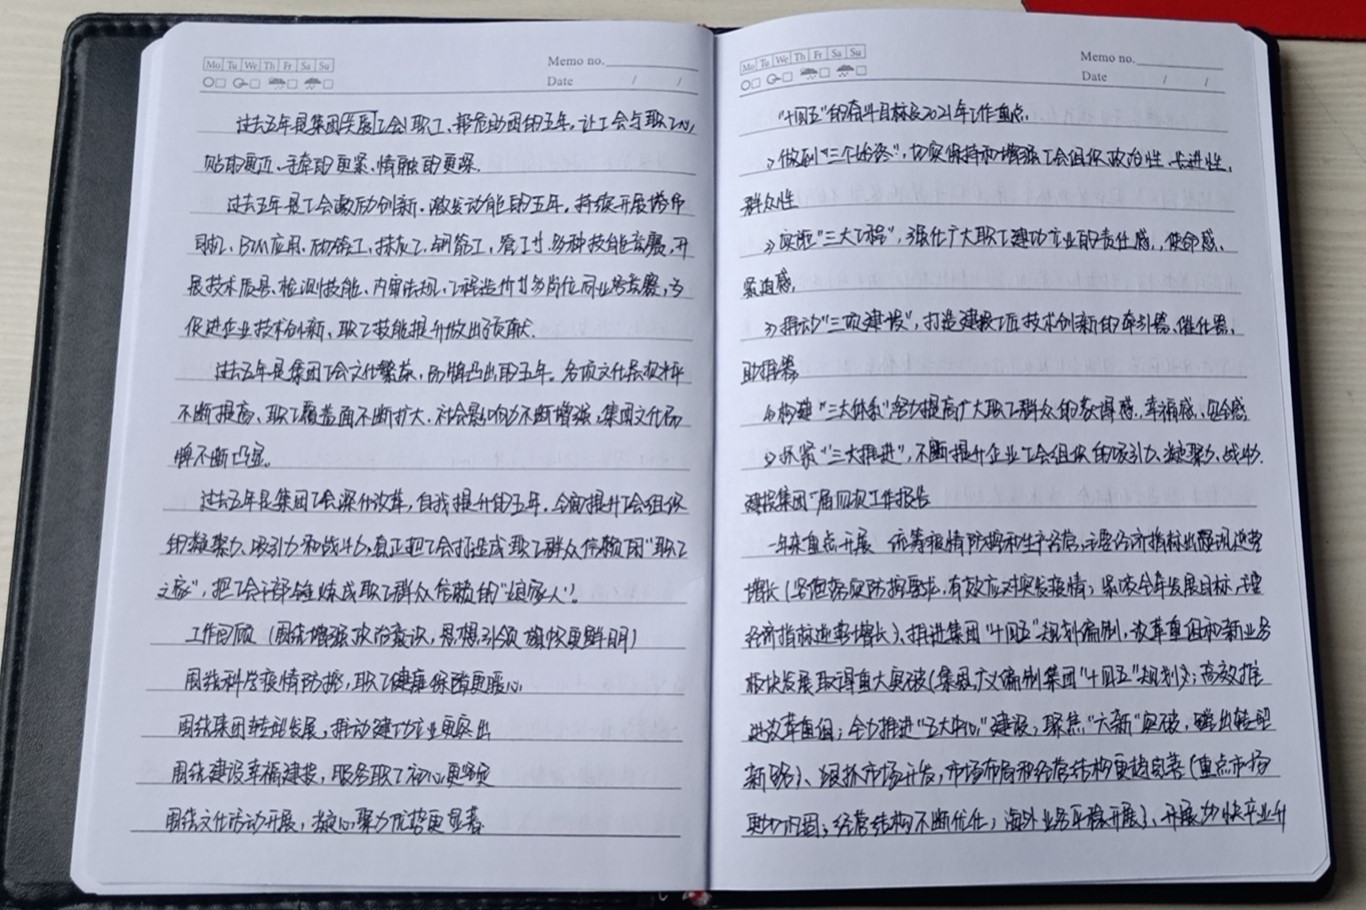 Mo Tu We Th Fr Sa Su
Memo no.
Date / /
过去五年是集团关爱工会职工、帮危助困的五年,让工会与职工心
贴的更近、手牵的更紧、情融的更深.
过去五年是工会激励创新、激发动能的五年,持续开展塔吊
司机、BIM应用、砌筑工、抹灰工、钢筋工、管工等多种技能竞赛,开
展技术质易、检测技能、内审法规、工程造价等多岗位同业务竞赛,为
促进企业技术创新、职工技能提升做出了贡献.
过去五年是集团工会文化繁荣,品牌凸出的五年。各项文化层次水平
不断提高、职工覆盖面不断扩大、社会影响力不断增强,集团文化品
牌不断凸显。
过去五年是集团工会深化改革,自我提升的五年.全面提升工会组织
的凝聚力、吸引力和战斗力,真正把工会打造成职工群众信赖的“职工
之家”,把工会干部锤炼成职工群众信赖的“娘家人”.
工作回顾(围绕增强政治意识,思想引领旗帜更鲜明)
围绕科学疫情防控,职工健康保障更暖心
围绕集团转型发展,推动建功立业更突出
围绕建设幸福建投,服务职工初心更坚定
围绕文化活动开展,凝心聚力优势更显著
Mo Tu We Th Fr Sa Su
Memo no.
Date / /
“十四五”的奋斗目标及2021年工作重点.
1)做到“三个始终”,切实保持和增强工会组织政治性、先进性、
群众性
2)实施“三大工程”,强化广大职工建功立业的责任感、使命感、
紧迫感,
3)推动“三项建设”,打造建投工匠技术创新的牵引器、催化器、
助推器,
4)构建“三大体系”努力提高广大职工群众的获得感、幸福感、安全感
5)抓紧“三大推进”,不断提升企业工会组织的吸引力、凝聚力、战斗力.
建投集团一届四次工作报告
一年来重点开展 统筹疫情防控和生产经营,主要经济指标出现逆势
增长(坚但落实防控要求,有效应对突发疫情;紧咬全年发展目标,主要
经济指标逆势增长)、推进集团“十四五”规划编制,改革重组和新业务
板块发展取得重大突破(集思广义编制集团“十四五”规划;高效推
进改革重组;全力推进“五大中心”建设,聚焦“六新”突破,蹚出转型
新路)、狠抓市场开发,市场布局和经营结构更趋完善(重点市场
更加巩固;经营结构不断优化;海外业务平稳开展)、开展